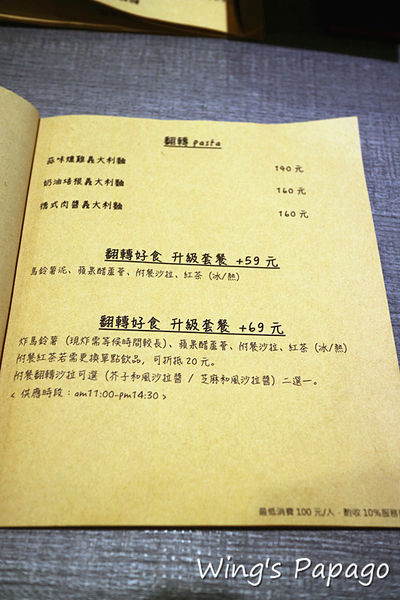 翻轉 pasta
蒜味燻雞義大利麵
140 元
奶油培根義大利麵
160 元
德式肉醬義大利麵
160 元
翻轉好食 升級套餐 +59 元
馬鈴薯泥、蘋果醋蘆薈、附餐沙拉、紅茶 (冰/熱)
翻轉好食 升級套餐 +69 元
炸馬鈴薯 (現炸需等候時間較長)、蘋果醋蘆薈、附餐沙拉、紅茶 (冰/熱)
附餐紅茶若需更換單點飲品，可折抵 20 元。
附餐翻轉沙拉可選 (芥子和風沙拉醬 / 芝麻和風沙拉醬) 二選一。
< 供應時段：am11:00-pm14:30 >
最低消費 100 元/人，酌收 10%服務
Wing's Papago